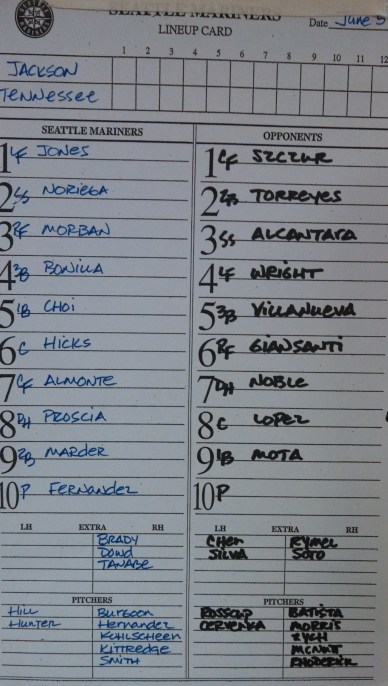 SEATTLE MARINERS
LINEUP CARD
Date June 3
1 2 3 4 5 6 7 8 9 10 11 12
JACKSON
TENNESSEE
SEATTLE MARINERS OPPONENTS
1 LF JONES 1 CF SZCZUR
2 SS NORIEGA 2 2B TORREYES
3 RF MORBAN 3 SS ALCANTARA
4 3B BONILLA 4 LF WRIGHT
5 1B CHOI 5 3B VILLANUEVA
6 C HICKS 6 RF GIANSANTI
7 CF ALMONTE 7 DH NOBLE
8 DH PROSCIA 8 C LOPEZ
9 2B MARDER 9 1B MOTA
10 P FERNANDEZ 10 P
LH EXTRA RH LH EXTRA RH
BRADY CHEN RYMEL
DOWD SILVA SOTO
TANABE
PITCHERS PITCHERS
HILL BURGOON ROSSCUP BATISTA
HUNTER HERNANDEZ CERVENKA MORRIS
KOHLSCHEEN ZYCH
KITTREDGE MCNUTT
SMITH RHODERICK